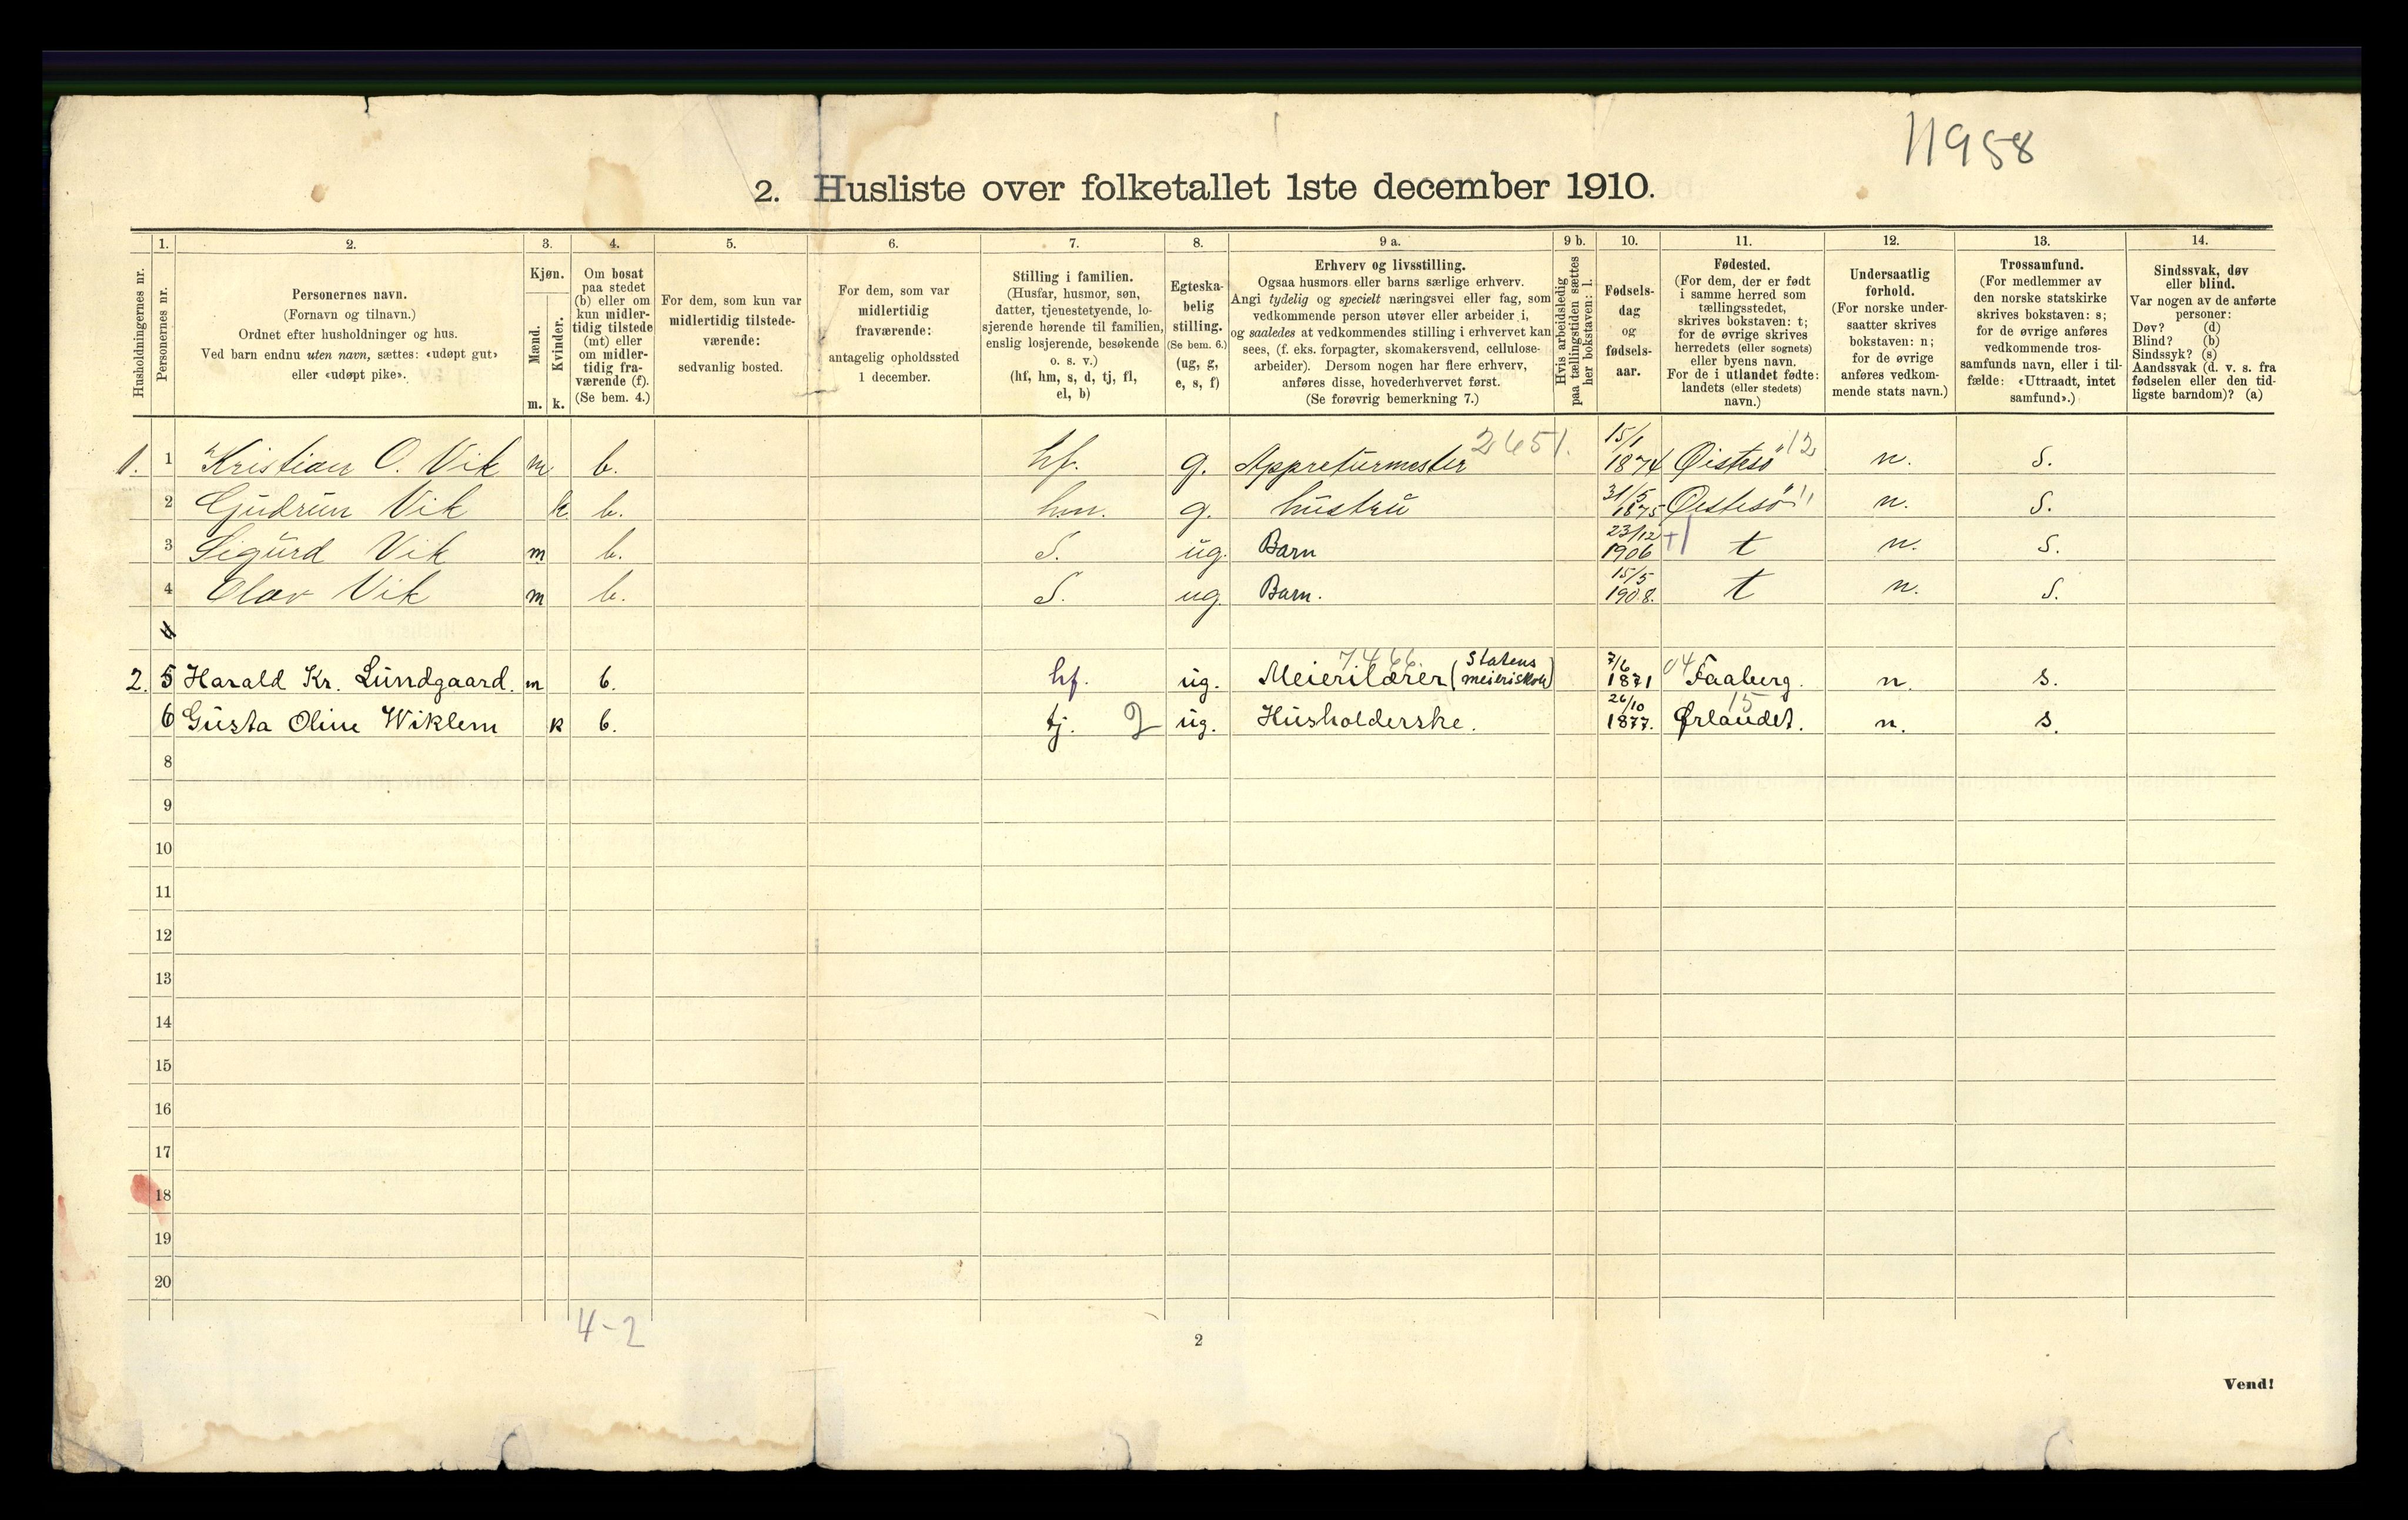 11958
2. Husliste over folketallet 1ste december 1910.
1. 2. 3. 4. 5. 6. 7. 8. 9 a. 9 b. 10. 11. 12. 13. 14.
Husholdningernes nr.
Personernes nr.
Personernes navn.
(Fornavn og tilnavn.)
Ordnet efter husholdninger og hus.
Ved barn endnu uten navn, sættes: «udøpt gut»
eller «udøpt pike».
Kjøn.
Mænd.
Kvinder.
m. k.
Om bosat
paa stedet
(b) eller om
kun midler-
tidig tilstede
(mt) eller
om midler-
tidig fra-
værende (f).
(Se bem. 4.)
For dem, som kun var
midlertidig tilstede-
værende:
sedvanlig bosted.
For dem, som var
midlertidig
fraværende:
antagelig opholdssted
1 december.
Stilling i familien.
(Husfar, husmor, søn,
datter, tjenestetyende, lo-
sjerende hørende til familien,
enslig losjerende, besøkende
o. s. v.)
(hf, hm, s, d, tj, fl,
el, b)
Egteska-
belig
stilling.
(Se bem. 6.)
(ug, g,
e, s, f)
Erhverv og livsstilling.
Ogsaa husmors eller barns særlige erhverv.
Angi tydelig og specielt næringsvei eller fag, som
vedkommende person utøver eller arbeider i,
og saaledes at vedkommendes stilling i erhvervet kan
sees, (f. eks. forpagter, skomakersvend, cellulose-
arbeider). Dersom nogen har flere erhverv,
anføres disse, hovederhvervet først.
(Se forøvrig bemerkning 7.)
Hvis arbeidsledig
paa tællingstiden sættes
her bokstaven: l.
Fødsels-
dag
og
fødsels-
aar.
Fødested.
(For dem, der er født
i samme herred som
tællingsstedet,
skrives bokstaven: t;
for de øvrige skrives
herredets (eller sognets)
eller byens navn.
For de i utlandet fødte:
landets (eller stedets)
navn.)
Undersaatlig
forhold.
(For norske under-
saatter skrives
bokstaven: n;
for de øvrige
anføres vedkom-
mende stats navn.)
Trossamfund.
(For medlemmer av
den norske statskirke
skrives bokstaven: s;
for de øvrige anføres
vedkommende tros-
samfunds navn, eller i til-
fælde: «Uttraadt, intet
samfund».)
Sindssvak, døv
eller blind.
Var nogen av de anførte
personer:
Døv? (d)
Blind? (b)
Sindssyk? (s)
Aandssvak (d. v. s. fra
fødselen eller den tid-
ligste barndom)? (a)
1. 1 Kristian O. Vik m b. hf. g. Appreturmester 2651. 15/1 1874 Øistesö 12 n. S.
2 Gudrun Vik k b. hm. g. hustru 31/5 1875 Øistesö " n. S.
3 Sigurd Vik m b. S. ug. Barn 23/12 1906 +1 t n. S.
4 Olav Vik m b. S. ug. Barn. 15/5 1908. t n. S.
2. 5 Harald Kr. Lundgaard. m b. hf. ug. Meierilærer (Statens meieriskole) 7/6 1871 04 Faaberg. n. s.
6 Gusta Oline Wiklem k b. tj. 2 ug. Husholderske. 26/10 1877. 15 Ørlandet. n. s.
8
9
10
11
12
13
14
15
16
17
18
19
20
4-2
2
Vend!